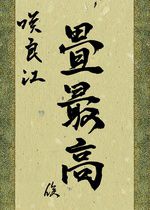 畳最高
咲良江
俊